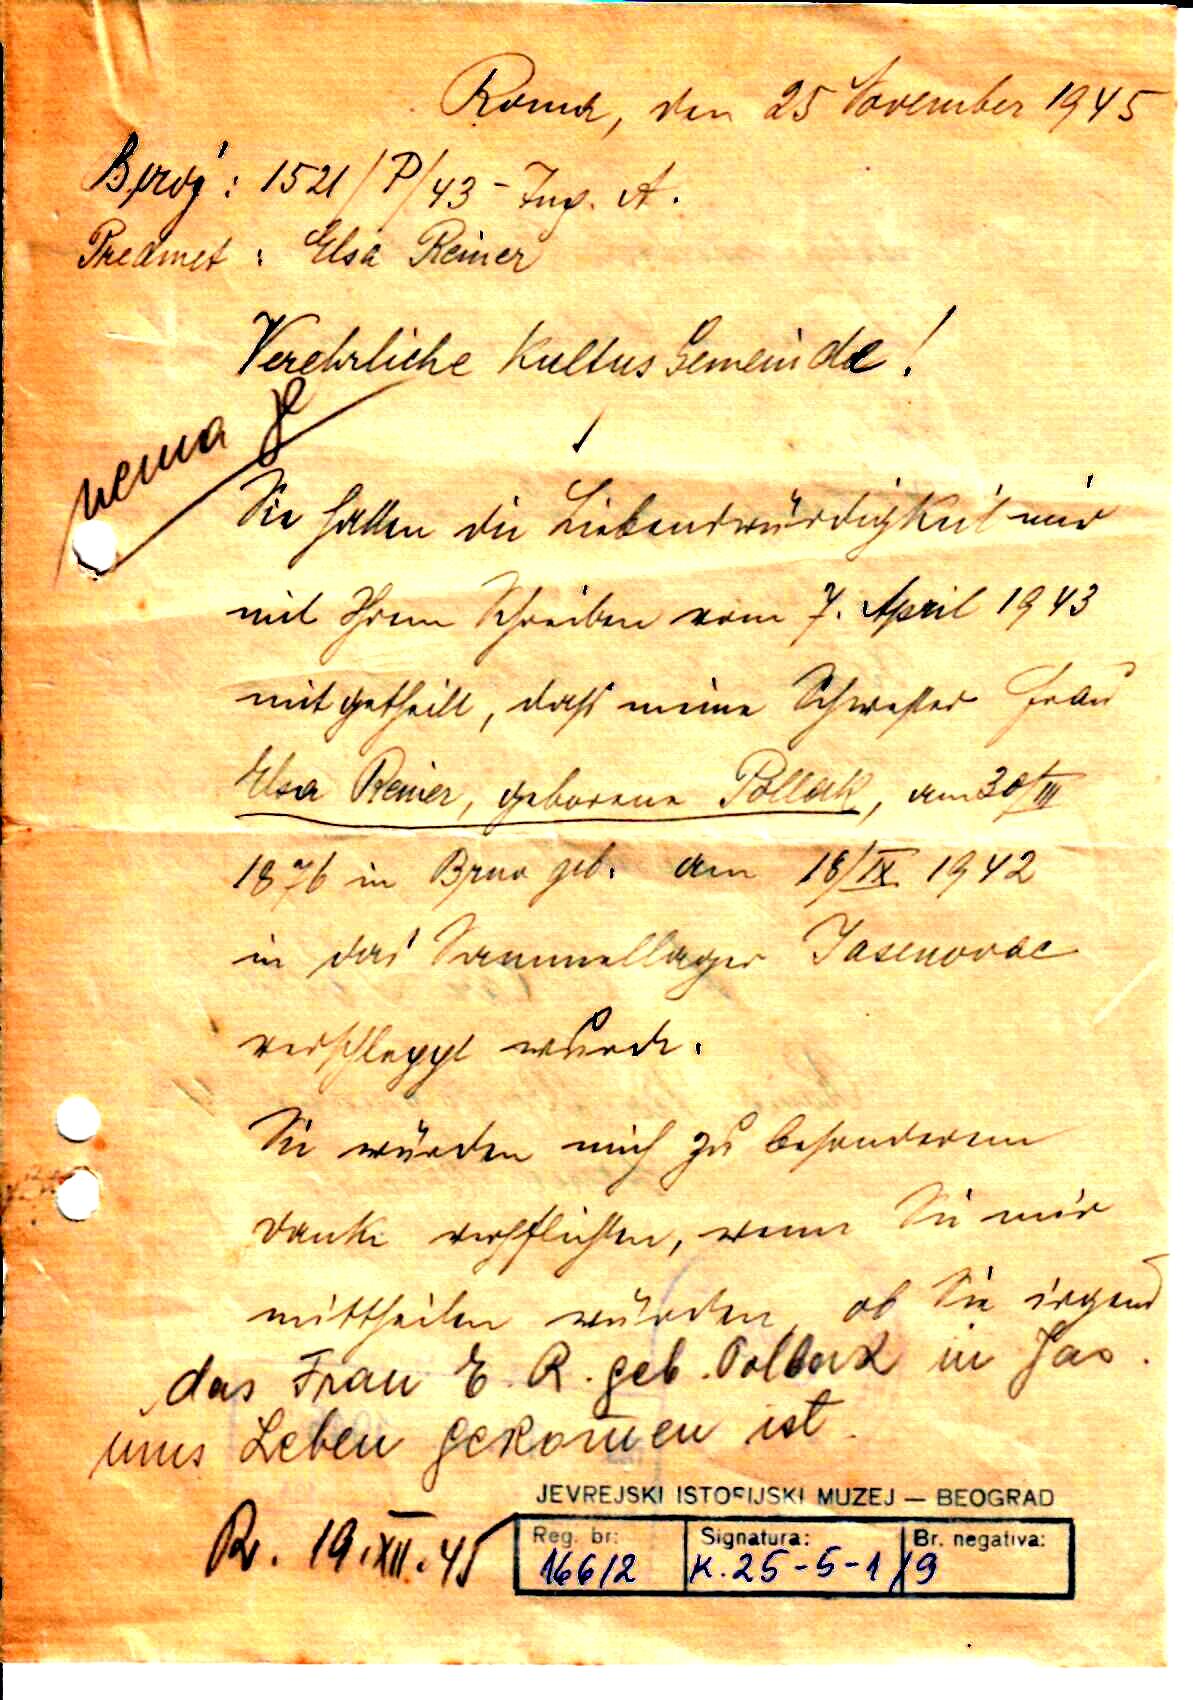 Roma, den 25 November 1945
Broj: 1521/P/43 - Ing. A.
Predmet: Elsa Reiner
Verehrliche Kultus Gemeinde!
nema
Sie hatten die Liebenswürdigkeit mir
mit Ihrem Schreiben vom 7. April 1943
mitgetheilt, daß meine Schwester Frau
Elsa Reiner, geborene Pollak, am 30/III
1876 in Brno geb. am 18/IX 1942
in das Sammellager Jasenovac
verschleppt wurde.
Sie würden mich zu besonderem
Danke verpflichten, wenn Sie mir
mittheilen würden, ob Sie irgend
das Frau E. R. geb. Pollak in Jas.
ums Leben gekomen ist.
19.XII.45
JEVREJSKI ISTORIJSKI MUZEJ — BEOGRAD
Reg. br: Signatura: Br. negativa:
166/2 K.25-5-1/9